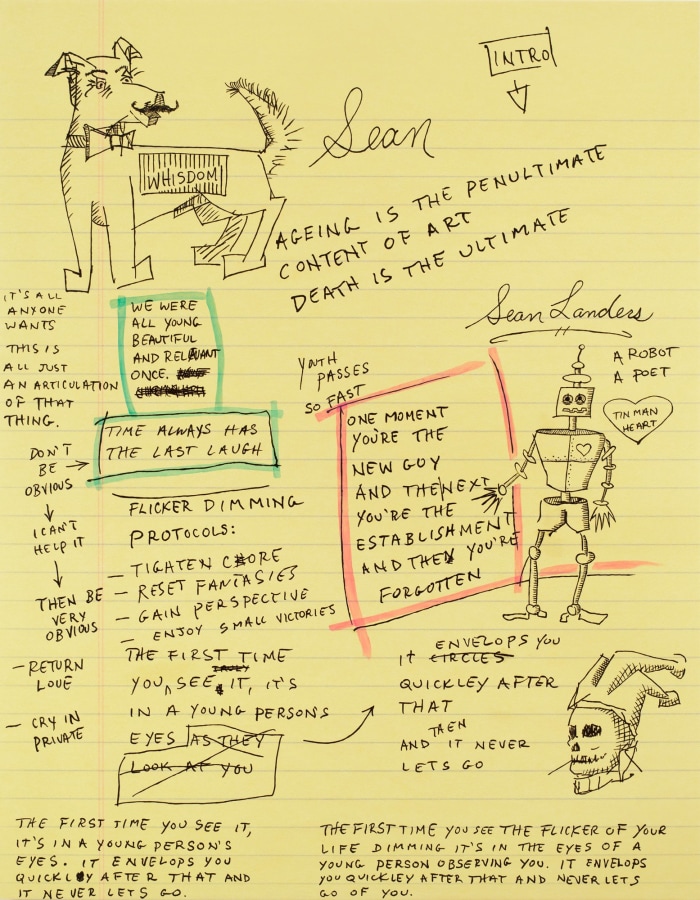 INTRO
Sean
WHISDOM
AGEING IS THE PENULTIMATE
CONTENT OF ART
DEATH IS THE ULTIMATE
IT'S ALL
ANYONE
WANTS
THIS IS
ALL JUST
AN ARTICULATION
OF THAT
THING.
WE WERE
ALL YOUNG
BEAUTIFUL
AND RELAVANT
ONCE.
TIME ALWAYS HAS
THE LAST LAUGH
DON'T
BE
OBVIOUS
I CAN'T
HELP IT
THEN BE
VERY
OBVIOUS
- RETURN
LOVE
- CRY IN
PRIVATE
FLICKER DIMMING
PROTOCOLS:
- TIGHTEN CORE
- RESET FANTASIES
- GAIN PERSPECTIVE
- ENJOY SMALL VICTORIES
YOUTH
PASSES
SO FAST
ONE MOMENT
YOU'RE THE
NEW GUY
AND THE NEXT
YOU'RE THE
ESTABLISHMENT
AND THEN YOU'RE
FORGOTTEN
Sean Landers
A ROBOT
A POET
TIN MAN
HEART
THE FIRST TIME
YOU SEE IT, IT'S
IN A YOUNG PERSON'S
EYES AS THEY
LOOK AT YOU
ENVELOPS YOU
IT CIRCLES
QUICKLEY AFTER
THAT
THEN
AND IT NEVER
LETS GO
THE FIRST TIME YOU SEE IT,
IT'S IN A YOUNG PERSON'S
EYES. IT ENVELOPS YOU
QUICKLY AFTER THAT AND
IT NEVER LETS GO.
THE FIRST TIME YOU SEE THE FLICKER OF YOUR
LIFE DIMMING IT'S IN THE EYES OF A
YOUNG PERSON OBSERVING YOU. IT ENVELOPS
YOU QUICKLEY AFTER THAT AND NEVER LETS
GO OF YOU.